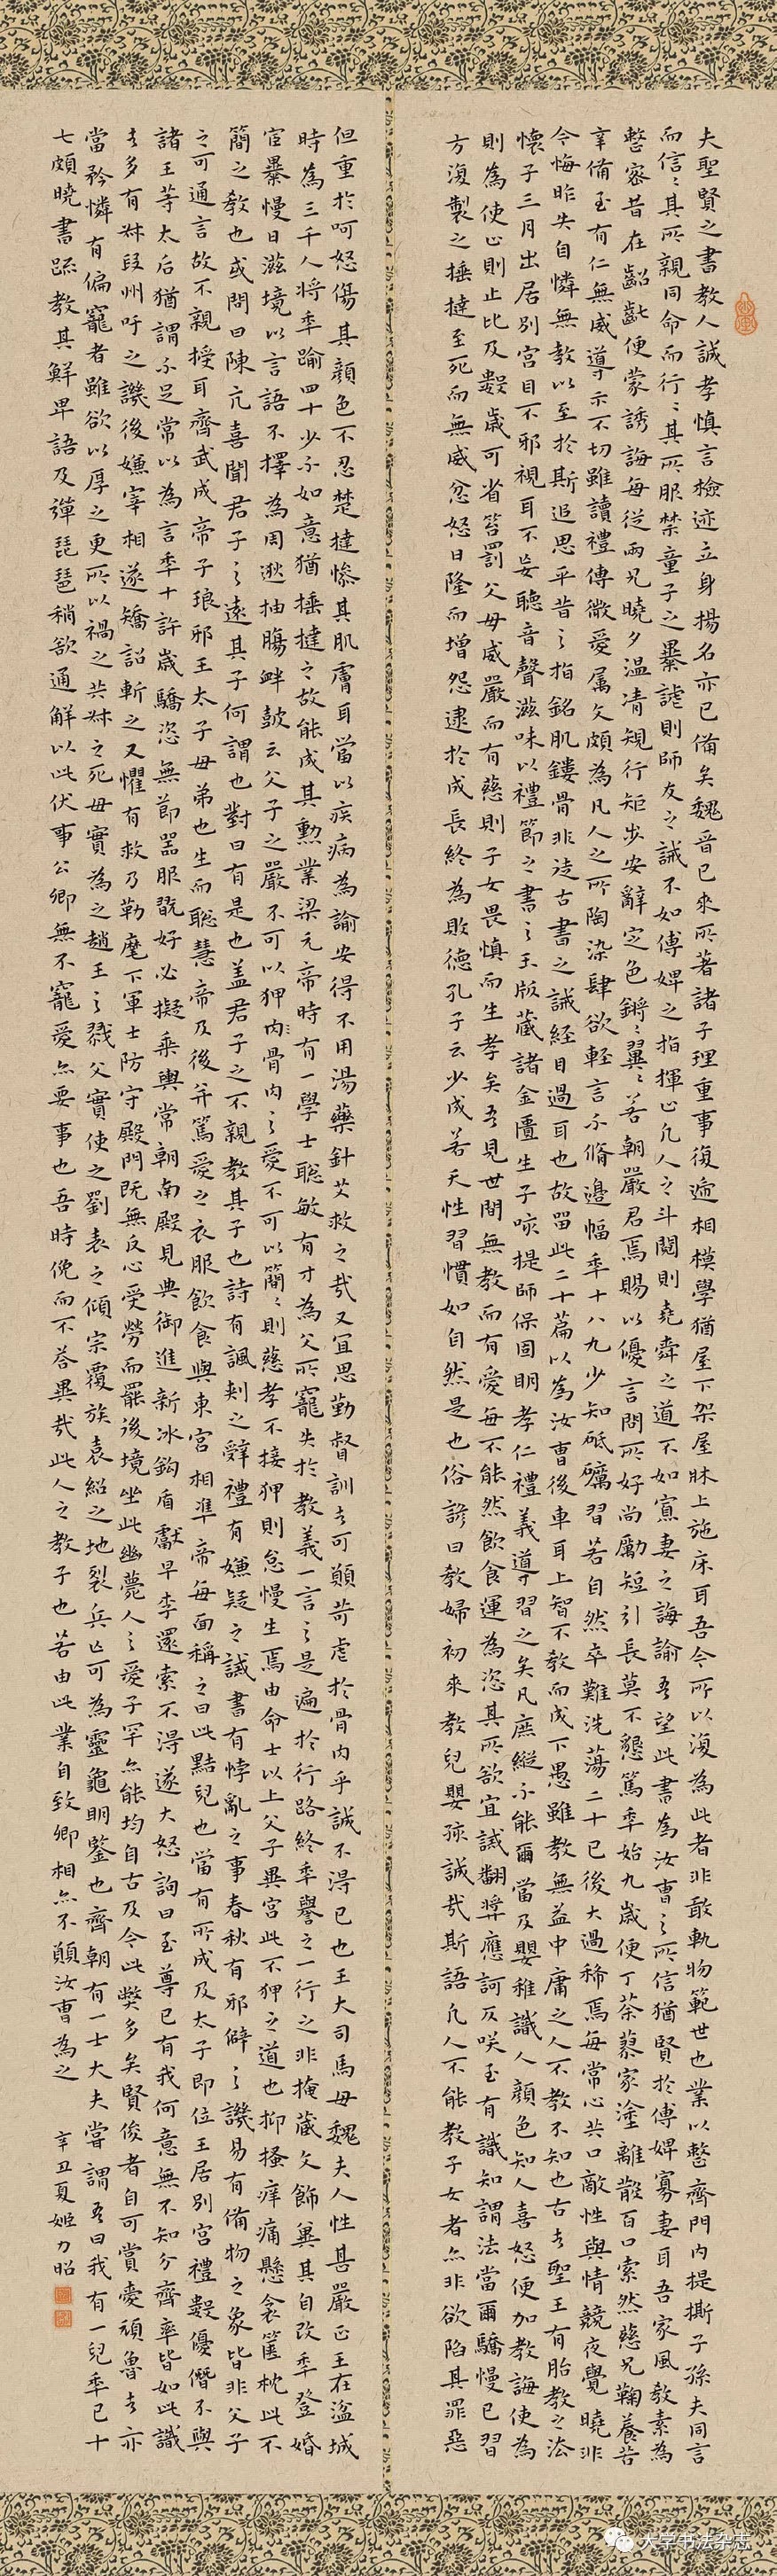 夫聖賢之書教人誠孝慎言檢迹立身揚名亦已備矣魏晉已來所著諸子理重事復遞相模學猶屋下架屋牀上施床耳吾今所以復為此者非敢軌物範世也業以整齊門內提撕子孫夫同言
而信信其所親同命而行行其所服禁童子之暴謔則師友之誡不如傅婢之指揮止凡人之斗鬩則堯舜之道不如寡妻之誨諭吾望此書為汝曹之所信猶賢於傅婢寡妻耳吾家風教素為
整密昔在齠齔便蒙誘誨每從兩兄曉夕溫凊規行矩步安辭定色鏘鏘翼翼若朝嚴君焉賜以優言問所好尚勵短引長莫不懇篤年始九歲便丁荼蓼家塗離散百口索然慈兄鞠養苦
辛備至有仁無威導示不切雖讀禮傳微愛屬文頗為凡人之所陶染肆欲輕言不脩邊幅年十八九少知砥礪習若自然卒難洗蕩二十已後大過稀焉每常心共口敵性與情競夜覺曉非
今悔昨失自憐無教以至於斯追思平昔之指銘肌鏤骨非徒古書之誡經目過耳也故留此二十篇以為汝曹後車耳上智不教而成下愚雖教無益中庸之人不教不知也古者聖王有胎教之法
懷子三月出居別宮目不邪視耳不妄聽音聲滋味以禮節之書之玉版藏諸金匱生子咳提師保固明孝仁禮義導習之矣凡庶縱不能爾當及嬰稚識人顏色知人喜怒便加教誨使為
則為使止則止比及數歲可省笞罰父母威嚴而有慈則子女畏慎而生孝矣吾見世間無教而有愛每不能然飲食運為恣其所欲宜誡翻獎應訶反咲至有識知謂法當爾驕慢已習
方復製之捶撻至死而無威忿怒日隆而增怨逮於成長終為敗德孔子云少成若天性習慣如自然是也俗諺曰教婦初來教兒嬰孩誠哉斯語凡人不能教子女者亦非欲陷其罪惡
但重於呵怒傷其顏色不忍楚撻慘其肌膚耳當以疾病為諭安得不用湯藥針艾救之哉又宜思勤督訓者可願苛虐於骨肉乎誠不得已也王大司馬母魏夫人性甚嚴正王在湓城
時為三千人將年踰四十少不如意猶捶撻之故能成其勳業梁元帝時有一學士聰敏有才為父所寵失於教義一言之是遍於行路終年譽之一行之非掩藏文飾冀其自改年登婚
宦暴慢日滋境以言語不擇為周逖抽腸衅鼓云父子之嚴不可以狎肉骨肉之愛不可以簡簡則慈孝不接狎則怠慢生焉由命士以上父子異宮此不狎之道也抑搔痒痛懸衾篋枕此不
簡之教也或問曰陳亢喜聞君子之遠其子何謂也對曰有是也蓋君子之不親教其子也詩有諷刺之辭禮有嫌疑之誡書有悖亂之事春秋有邪僻之譏易有備物之象皆非父子
之可通言故不親授耳齊武成帝子琅邪王太子母弟也生而聰慧帝及後并篤愛之衣服飲食與東宮相準帝每面稱之曰此黠兒也當有所成及太子即位王居別宮禮數優僭不與
諸王等太后猶謂不足常以為言年十許歲驕恣無節器服翫好必擬乘輿常朝南殿見典御進新冰鈎盾獻早李還索不得遂大怒詢曰至尊已有我何意無不知分齊率皆如此識
者多有叔段州吁之譏後嫌宰相遂矯詔斬之又懼有救乃勒麾下軍士防守殿門既無反心受勞而罷後境坐此幽薨人之愛子罕亦能均自古及今此弊多矣賢俊者自可賞愛頑魯者亦
當矜憐有偏寵者雖欲以厚之更所以禍之共叔之死母實為之趙王之戮父實使之劉表之傾宗覆族袁紹之地裂兵亡可為靈龜明鑒也齊朝有一士大夫嘗謂吾曰我有一兒年已十
七頗曉書疏教其鮮卑語及彈琵琶稍欲通解以此伏事公卿無不寵愛亦要事也吾時俛而不荅異哉此人之教子也若由此業自致卿相亦不願汝曹為之
辛丑夏姬力昭
大学书法杂志